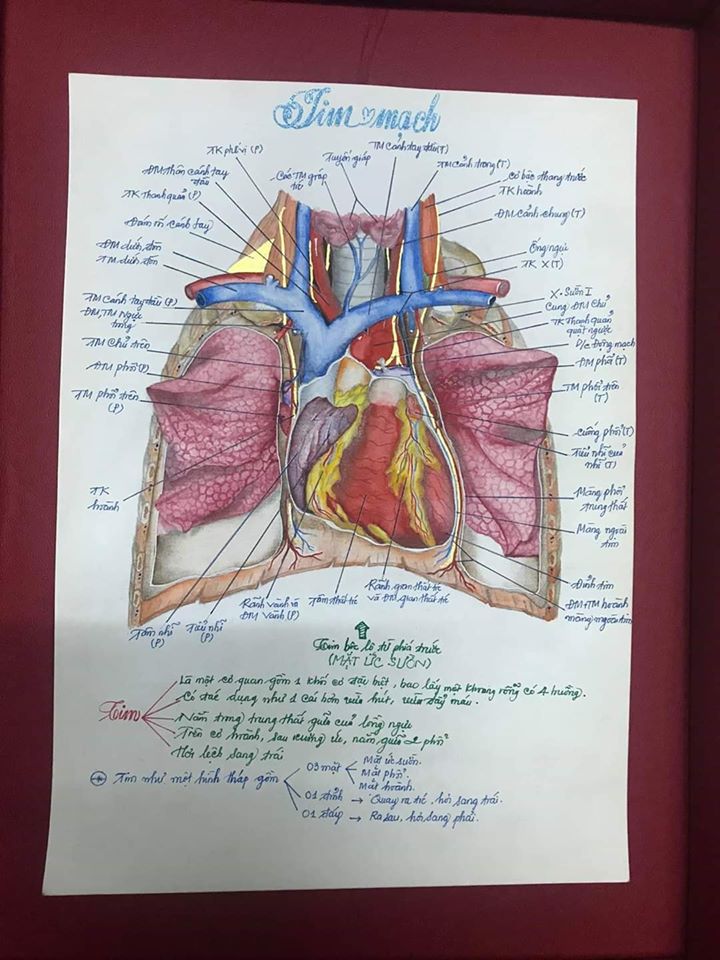 Tim mạch
TK phế vị (P)
ĐM thân cánh tay
đầu
TK thanh quản (P)
Đám rối cánh tay
ĐM dưới đòn
TM dưới đòn
TM Cánh tay đầu (P)
ĐM, TM Ngực
trong
TM Chủ trên
ĐM phổi (P)
TM phổi trên
(P)
TK
hoành
Các TM giáp
Tuyến giáp
TM cánh tay đầu (T)
TM cảnh trong (T)
Cơ bậc thang trước
TK hoành
ĐM cảnh chung (T)
Ống ngực
TK X (T)
X. Sườn I
Cung ĐM Chủ
TK Thanh quản
quặt ngược
D/c Động mạch
ĐM phổi (T)
TM phổi trên
(T)
Cuống phổi (T)
Tiểu nhĩ của
nhĩ (T)
Màng phổi
trung thất
Màng ngoài
tim
Đỉnh tim
ĐM TM hoành
màng ngoài tim
Tâm nhĩ
(P)
Tiểu nhĩ
(P)
Rãnh vành và
ĐM Vành (P)
Tâm thất
Rãnh gian thất
và ĐM gian thất
Tim bộc lộ từ phía trước
(MẶT ỨC SƯỜN)
Tim
Là một cơ quan gồm 1 khối cơ đặc biệt, bao lấy một khoang rỗng có 4 buồng.
Có tác dụng như 1 cái bơm vừa hút, vừa đẩy máu.
Nằm trong trung thất giữa của lồng ngực
Trên cơ hoành, sau xương ức, nằm giữa 2 phổi
Hơi lệch sang trái
Tim như một hình tháp gồm
03 mặt
Mặt ức sườn.
Mặt phổi.
Mặt hoành.
01 đỉnh → Quay ra trước, hơi sang trái.
01 đáy → Ra sau, hơi sang phải.